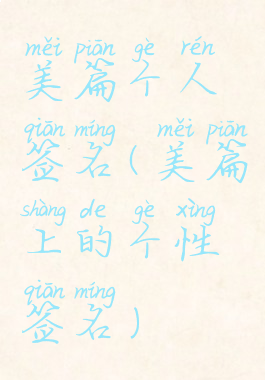 měi piān gè rén
美篇个人
qiān míng měi piān
签名(美篇
shàng de gè xìng
上的个性
qiān míng
签名)